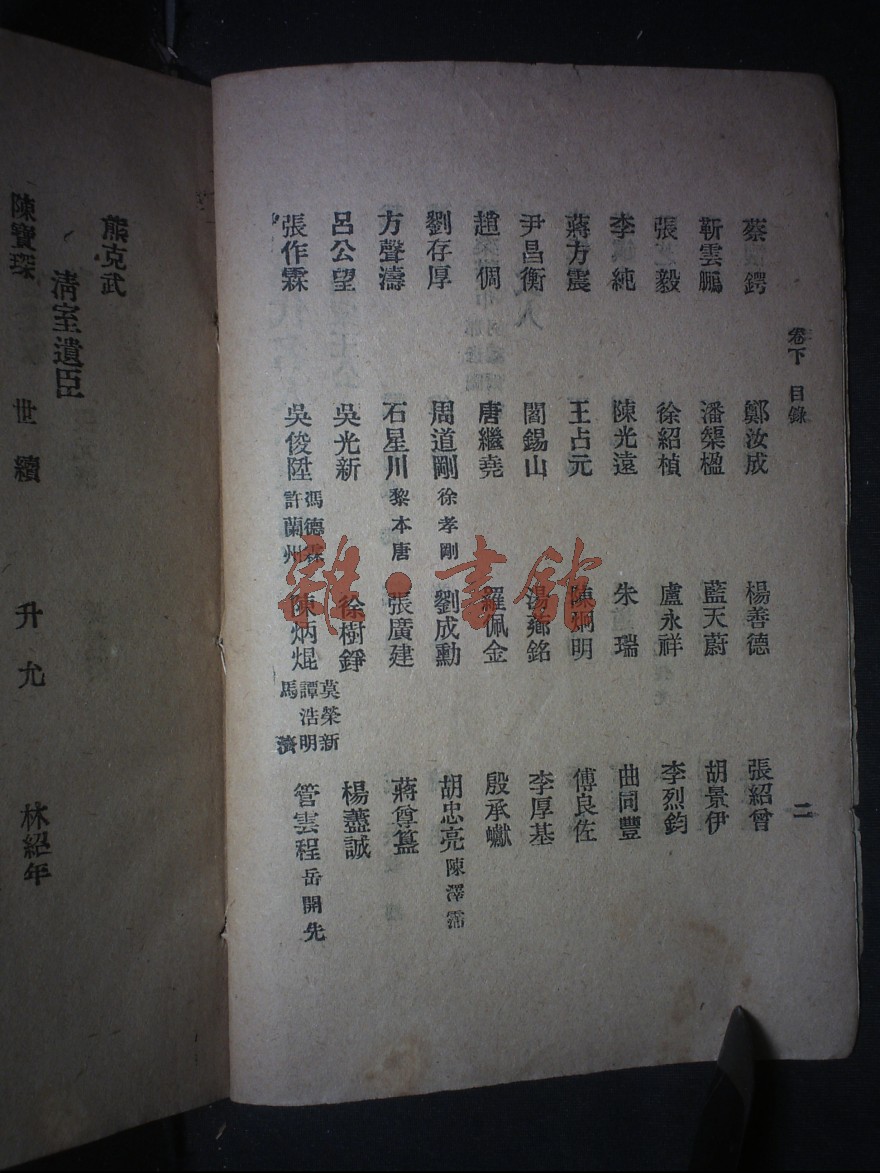 卷下 目錄 二
蔡鍔 鄭汝成 楊善德 張紹曾
靳雲鵬 潘榘楹 藍天蔚 胡景伊
張毅 徐紹楨 盧永祥 李烈鈞
李純 陳光遠 朱瑞 曲同豐
蔣方震 王占元 陳炯明 傅良佐
尹昌衡 閻錫山 湯薌銘 李厚基
趙倜 唐繼堯 羅佩金 殷承瓛
劉存厚 周道剛 徐孝剛 劉成勳 胡忠亮 陳澤霈
方聲濤 石星川 黎本唐 張廣建 蔣尊簋
呂公望 吳光新 徐樹錚 楊藎誠
張作霖 吳俊陞 馮德霖 許蘭州 陳炳焜 莫榮新 譚浩明 馬濟 管雲程 岳開先
熊克武
清室遺臣
陳寶琛 世續 升允 林紹年
雜·書館